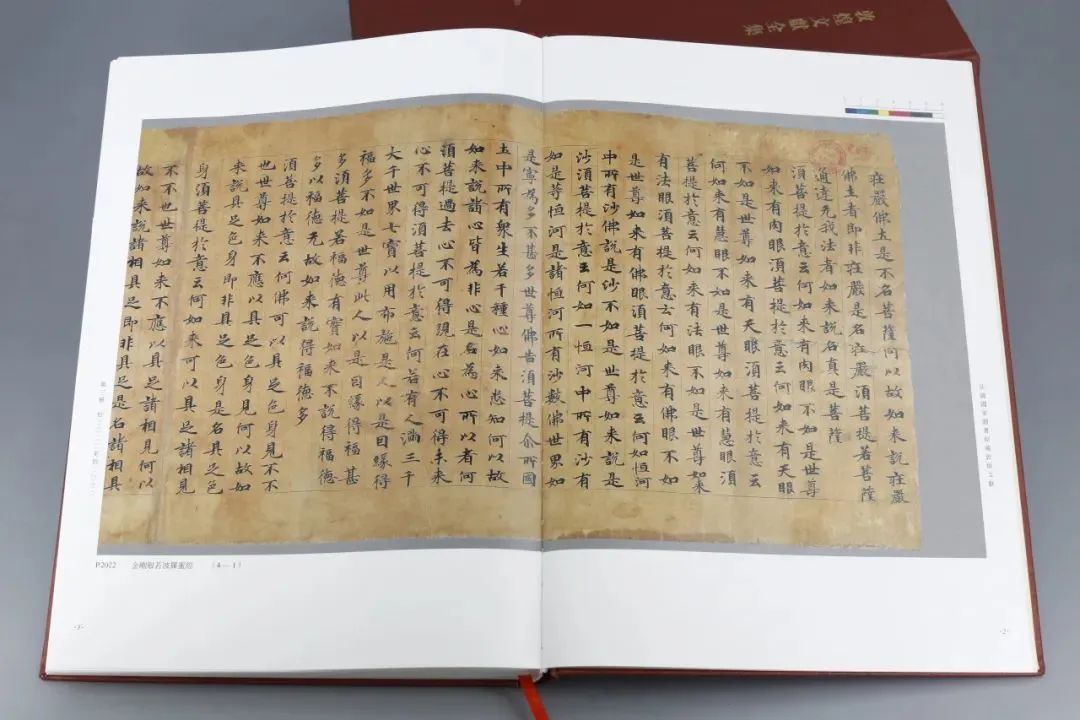 敦煌文獻全集
莊嚴佛土是不名菩薩何以故如来說莊嚴
佛土者即非莊嚴是名莊嚴須菩提若菩薩
通達无我法者如来說名真是菩薩
須菩提於意云何如来有肉眼不如是世尊
如来有肉眼須菩提於意云何如来有天眼
不如是世尊如来有天眼須菩提於意云
何如来有慧眼不如是世尊如来有慧眼須
菩提於意云何如来有法眼不如是世尊如来
有法眼須菩提於意云何如来有佛眼不如
是世尊如来有佛眼須菩提於意云何如恒河
中所有沙佛說是沙不如是世尊如来說是
沙須菩提於意云何如一恒河中所有沙有
如是等恒河是諸恒河所有沙數佛世界如
是寧為多不甚多世尊佛告須菩提尒所國
土中所有衆生若干種心如来悉知何以故
如来說諸心皆為非心是名為心所以者何
須菩提過去心不可得現在心不可得未来
心不可得須菩提於意云何若有人滿三千
大千世界七寶以用布施是人以是因緣得
福多不如是世尊此人以是因緣得福甚
多須菩提若福德有實如来不說得福德
多以福德无故如来說得福德多
須菩提於意云何佛可以具足色身見不不
也世尊如来不應以具足色身見何以故如
来說具足色身即非具足色身是名具足色
身須菩提於意云何如来可以具足諸相見
不不也世尊如来不應以具足諸相見何以
故如来說諸相具足即非具足是名諸相具
P.2022 金剛般若波羅蜜經 (4—1)